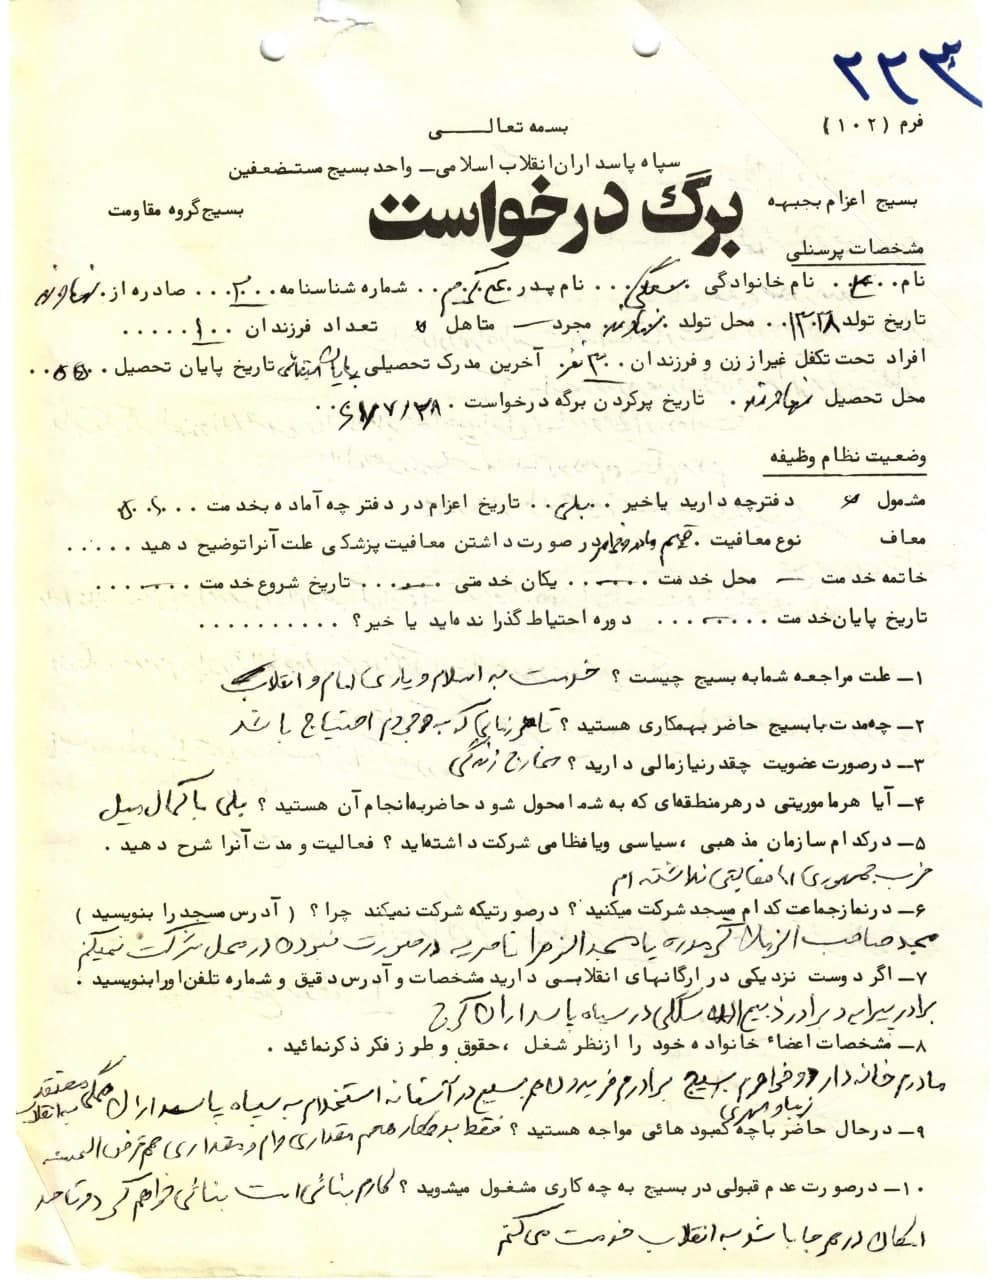 ۳۲۲۳
فرم (۱۰۲)
بسمه تعالی
سپاه پاسداران انقلاب اسلامی - واحد بسیج مستضعفین
بسیج اعزام بجبهه
برگ درخواست
بسیج گروه مقاومت
مشخصات پرسنلی
نام نام خانوادگی سگکی نام پدر شماره شناسنامه ۲۰ صادره از نهاوند
تاریخ تولد ۱۳۰۲۸ محل تولد نهاوند مجرد — متاهل تعداد فرزندان ۱۰
افراد تحت تکفل غیر از زن و فرزندان ۳ نفر آخرین مدرک تحصیلی پایان ابتدائی تاریخ پایان تحصیل
محل تحصیل نهاوند تاریخ پرکردن برگه درخواست ۶۱/۷/۲۸
وضعیت نظام وظیفه
مشمول دفترچه دارید یا خیر بلی تاریخ اعزام در دفترچه آماده بخدمت
معاف نوع معافیت در صورت داشتن معافیت پزشکی علت آنرا توضیح دهید
خاتمه خدمت — محل خدمت یکان خدمتی تاریخ شروع خدمت
تاریخ پایان خدمت دوره احتیاط گذرانده‌اید یا خیر؟
۱- علت مراجعه شما به بسیج چیست؟ خدمت به اسلام و یاری امام و انقلاب
۲- چه مدت با بسیج حاضر بهمکاری هستید؟ تا هر زمانی که به وجودم احتیاج باشد
۳- در صورت عضویت چقدر نیاز مالی دارید؟ مخارج زندگی
۴- آیا هر ماموریتی در هر منطقه‌ای که به شما محول شود حاضر به انجام آن هستید؟ بلی با کمال میل
۵- در کدام سازمان مذهبی، سیاسی و یا نظامی شرکت داشته‌اید؟ فعالیت و مدت آنرا شرح دهید.
حزب جمهوری اما فعالیتی نداشته ام
۶- در نماز جماعت کدام مسجد شرکت میکنید؟ در صورتیکه شرکت نمیکند چرا؟ (آدرس مسجد را بنویسید)
مسجد صاحب الزمان یا مسجد الزهرا ناصریه در صورت نبودن در محل شرکت نمیکنم
۷- اگر دوست نزدیکی در ارگانهای انقلابی دارید مشخصات و آدرس دقیق و شماره تلفن اورا بنویسید.
برادر و برادر ذبیح الله سگکی در سپاه پاسداران کرج
۸- مشخصات اعضاء خانواده خود را از نظر شغل، حقوق و طرز فکر ذکر نمائید.
مادرم خانه دار دو خواهرم بسیج برادرم فریدون هم بسیج در آستانه استخدام به سپاه پاسداران همگی معتقد به انقلاب
زیبا و مهری
۹- در حال حاضر با چه کمبودهائی مواجه هستید؟ فقط بدهکار هستم مقداری وام و مقداری هم قرض الحسنه
۱۰- در صورت عدم قبولی در بسیج به چه کاری مشغول میشوید؟ کارم بنائی است بنائی خواهم کرد و تا حد
امکان در هر جا باشد به انقلاب خدمت می کنم